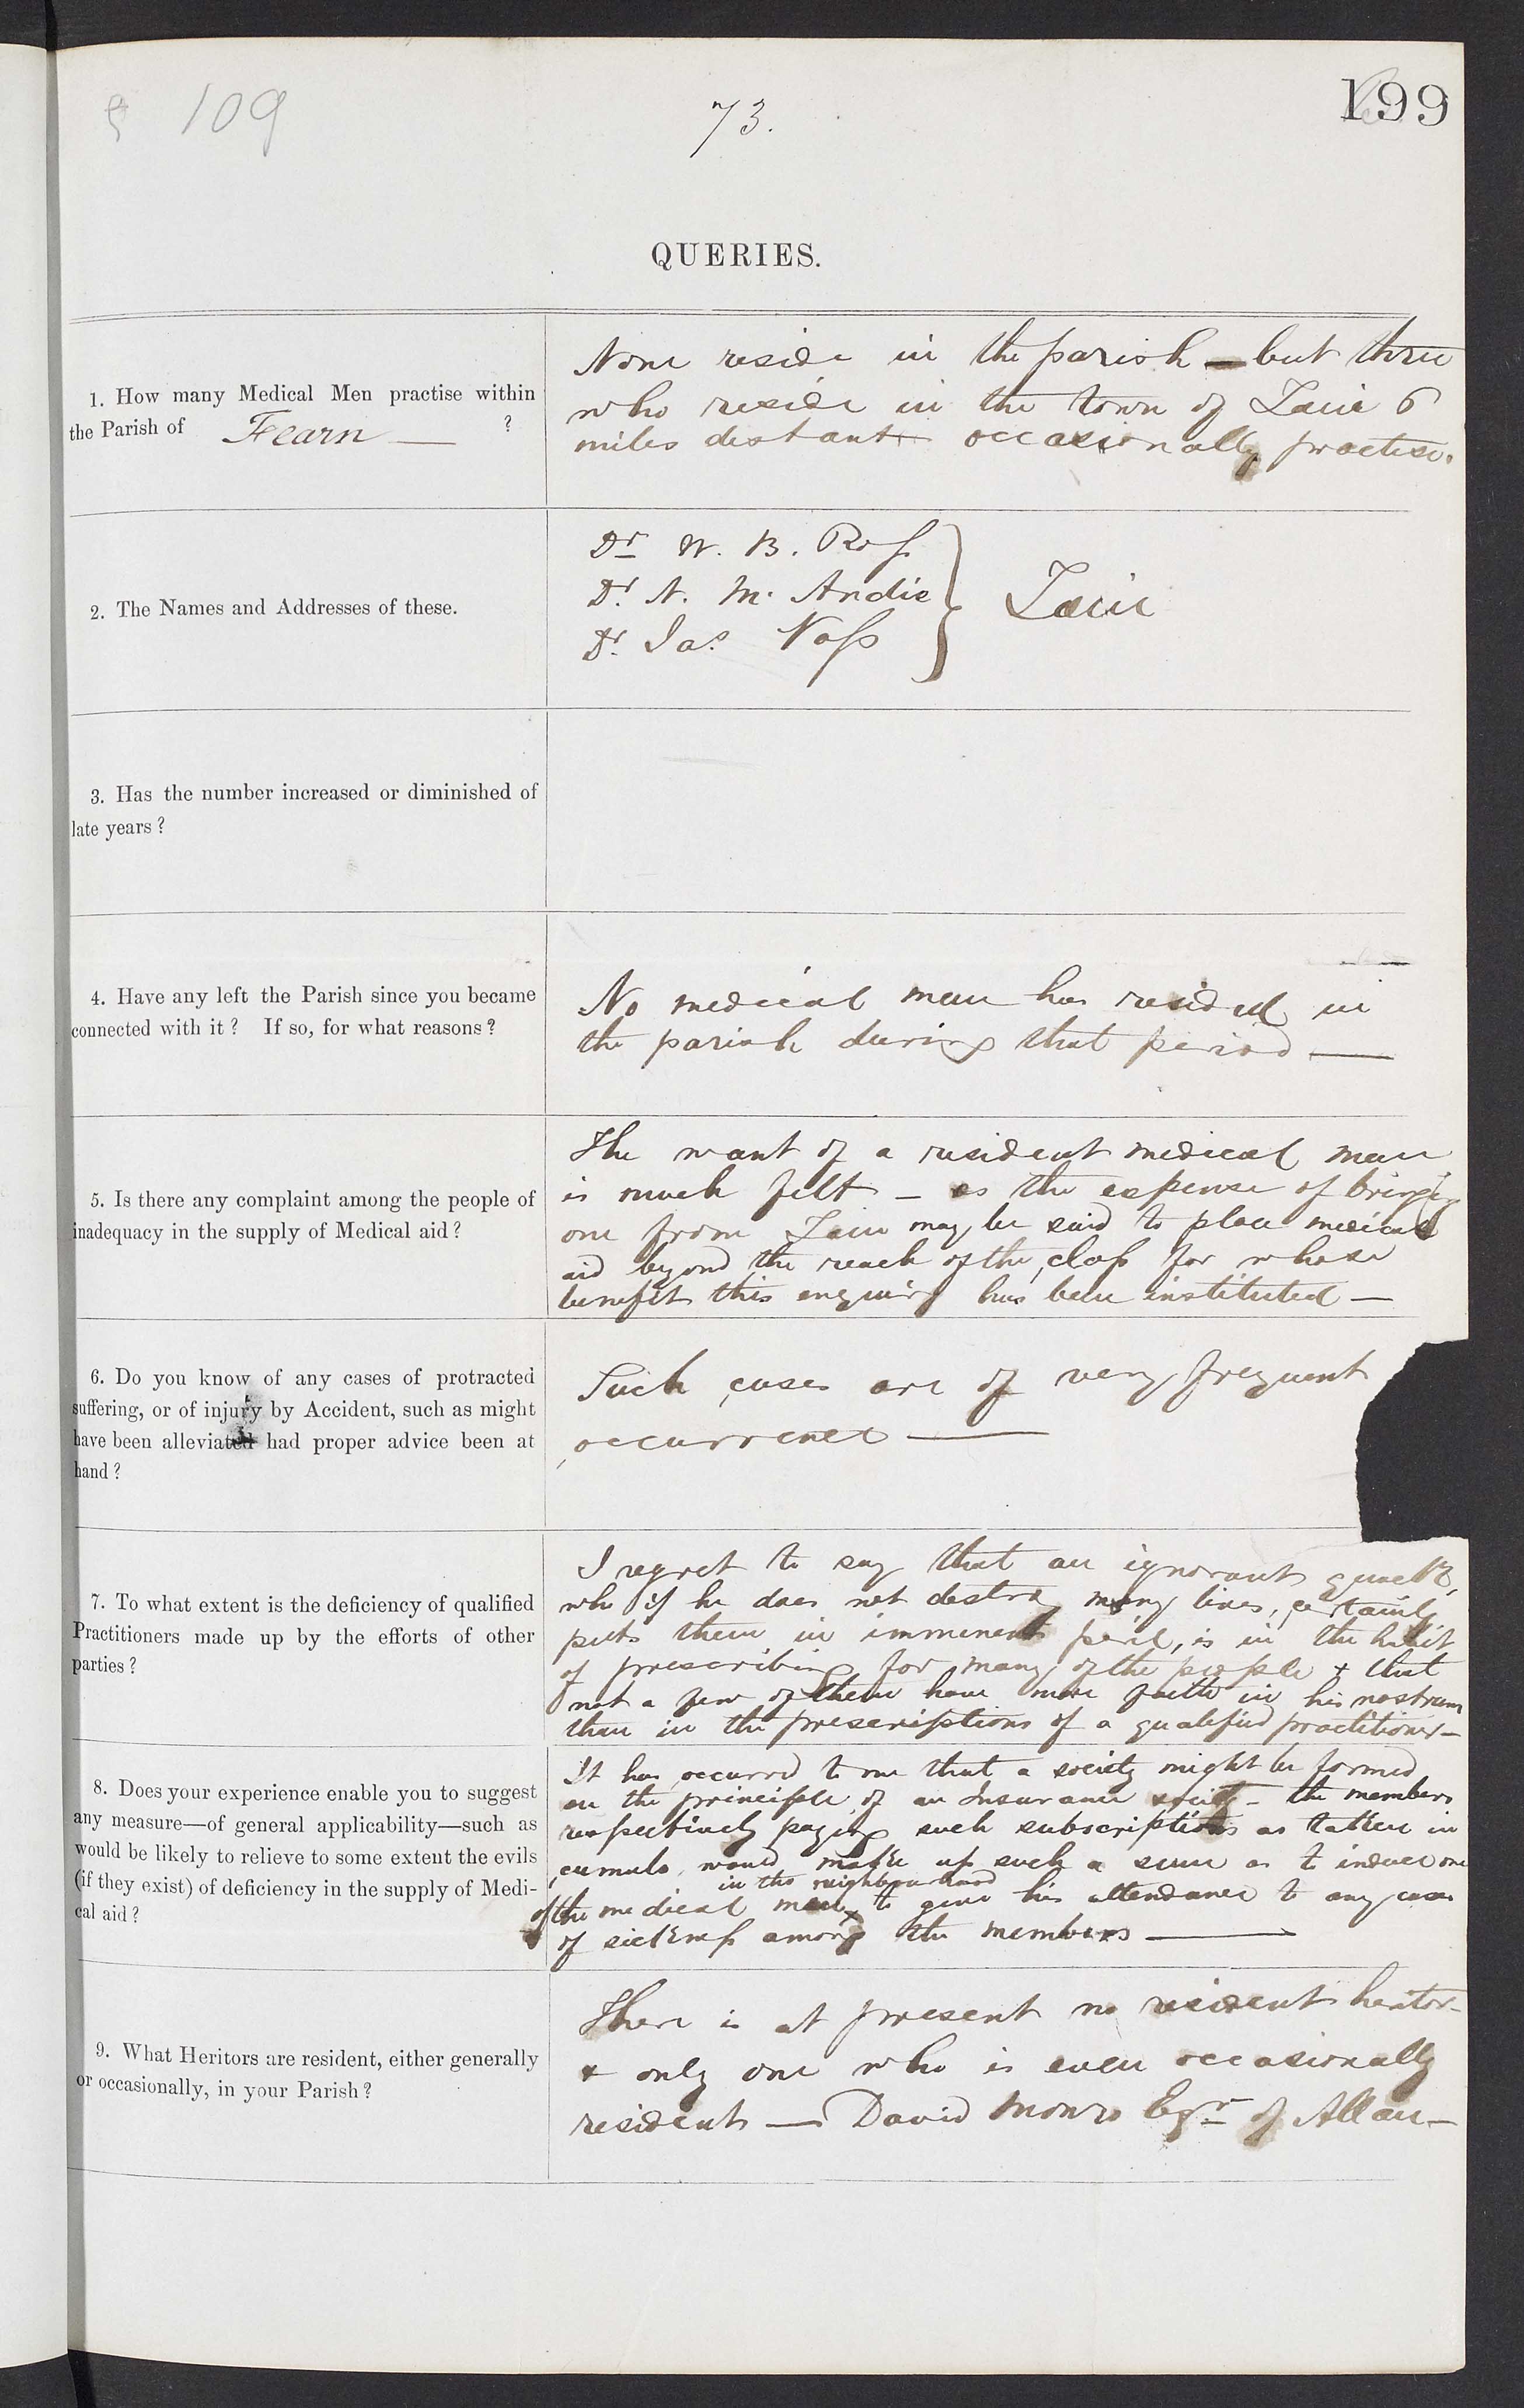 109
73.
199
QUERIES.
1. How many Medical Men practise within
the Parish of Fearn — ?
None reside in the parish — but three
who reside in the town of Tain 6
miles distant occasionally practise.
2. The Names and Addresses of these.
Dr W. B. Ross
Dr. N. M. Andie
Dr. Jas. Vass
Tain
3. Has the number increased or diminished of
late years?
4. Have any left the Parish since you became
connected with it? If so, for what reasons?
No medical man has resided in
the parish during that period —
5. Is there any complaint among the people of
inadequacy in the supply of Medical aid?
The want of a resident medical man
is much felt — as the expense of bringing
one from Tain may be said to place medical
aid beyond the reach of the class for whose
benefit this enquiry has been instituted —
6. Do you know of any cases of protracted
suffering, or of injury by Accident, such as might
have been alleviated had proper advice been at
hand?
Such cases are of very frequent
occurrence —
7. To what extent is the deficiency of qualified
Practitioners made up by the efforts of other
parties?
I regret to say that an ignorant quack,
who if he does not destroy many lives, certainly
puts them in imminent peril, is in the habit
of prescribing for many of the people & that
not a few of them have more faith in his nostrum
than in the prescriptions of a qualified practitioner —
8. Does your experience enable you to suggest
any measure—of general applicability—such as
would be likely to relieve to some extent the evils
(if they exist) of deficiency in the supply of Medi-
cal aid?
It has occurred to me that a society might be formed
on the principle of an Insurance society — the members
respectively paying such subscriptions as taken in
cumulo, would make up such a sum as to induce one
in the neighbourhood
of the medical men x to give his attendance to any cases
of sickness among the members —
9. What Heritors are resident, either generally
or occasionally, in your Parish?
There is at present no resident heritor —
& only one who is even occasionally
resident — David Monro Esqr of Allan —